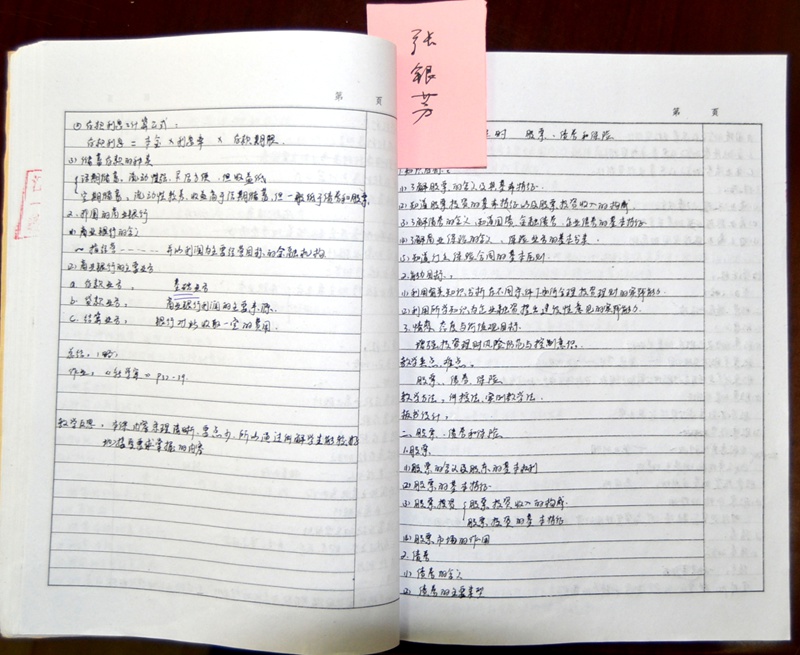 张
银
芳
第 页
④存款利息计算公式：
存款利息 = 本金 × 利息率 × 存款期限
(3) 储蓄存款的种类
活期储蓄，流动性强、灵活方便，但收益低
定期储蓄，流动性较差，收益高于活期储蓄，但一般低于债券和股票
2. 我国的商业银行
(1) 商业银行的含义
～指经营------并以利润为主要经营目标的金融机构
(2) 商业银行的主要业务
a. 存款业务， 基础业务
b. 贷款业务， 商业银行利润的主要来源
c. 结算业务， 银行对此收取一定的费用
总结：(略)
作业： P17-19
教学反思：本课内容条理清晰、要点少，所以通过
地掌握的内容
第 页
时 股票、债券和保险
1.知识目标：
(1)了解股票的含义及其基本特征.
(2)知道股票投资的基本特征以及股票投资收入的构成
(3)了解债券的含义，知道国债、金融债券、企业债券的基本特征
(4)了解商业保险的含义、保险业务的基本分类
(5)知道订立保险合同的基本原则
2.能力目标：
(1)利用有关知识分析在不同条件下如何合理投资理财的实际能力
(2)利用所学知识为企业融资提出建设性意见的实际能力.
3.情感、态度与价值观目标
增强投资理财风险防范与控制意识
教学重点、难点：
股票、债券、保险
教学方法：讲授法、案例教学法.
板书设计：
二、股票、债券和保险
1.股票
(1)股票的含义及股东的基本权利
(2)股票的基本特征
(3)股票投资 股票投资收入的构成
股票投资的基本特征
(4)股票市场的作用
2.债券
(1)债券的含义
(2)债券的主要类型